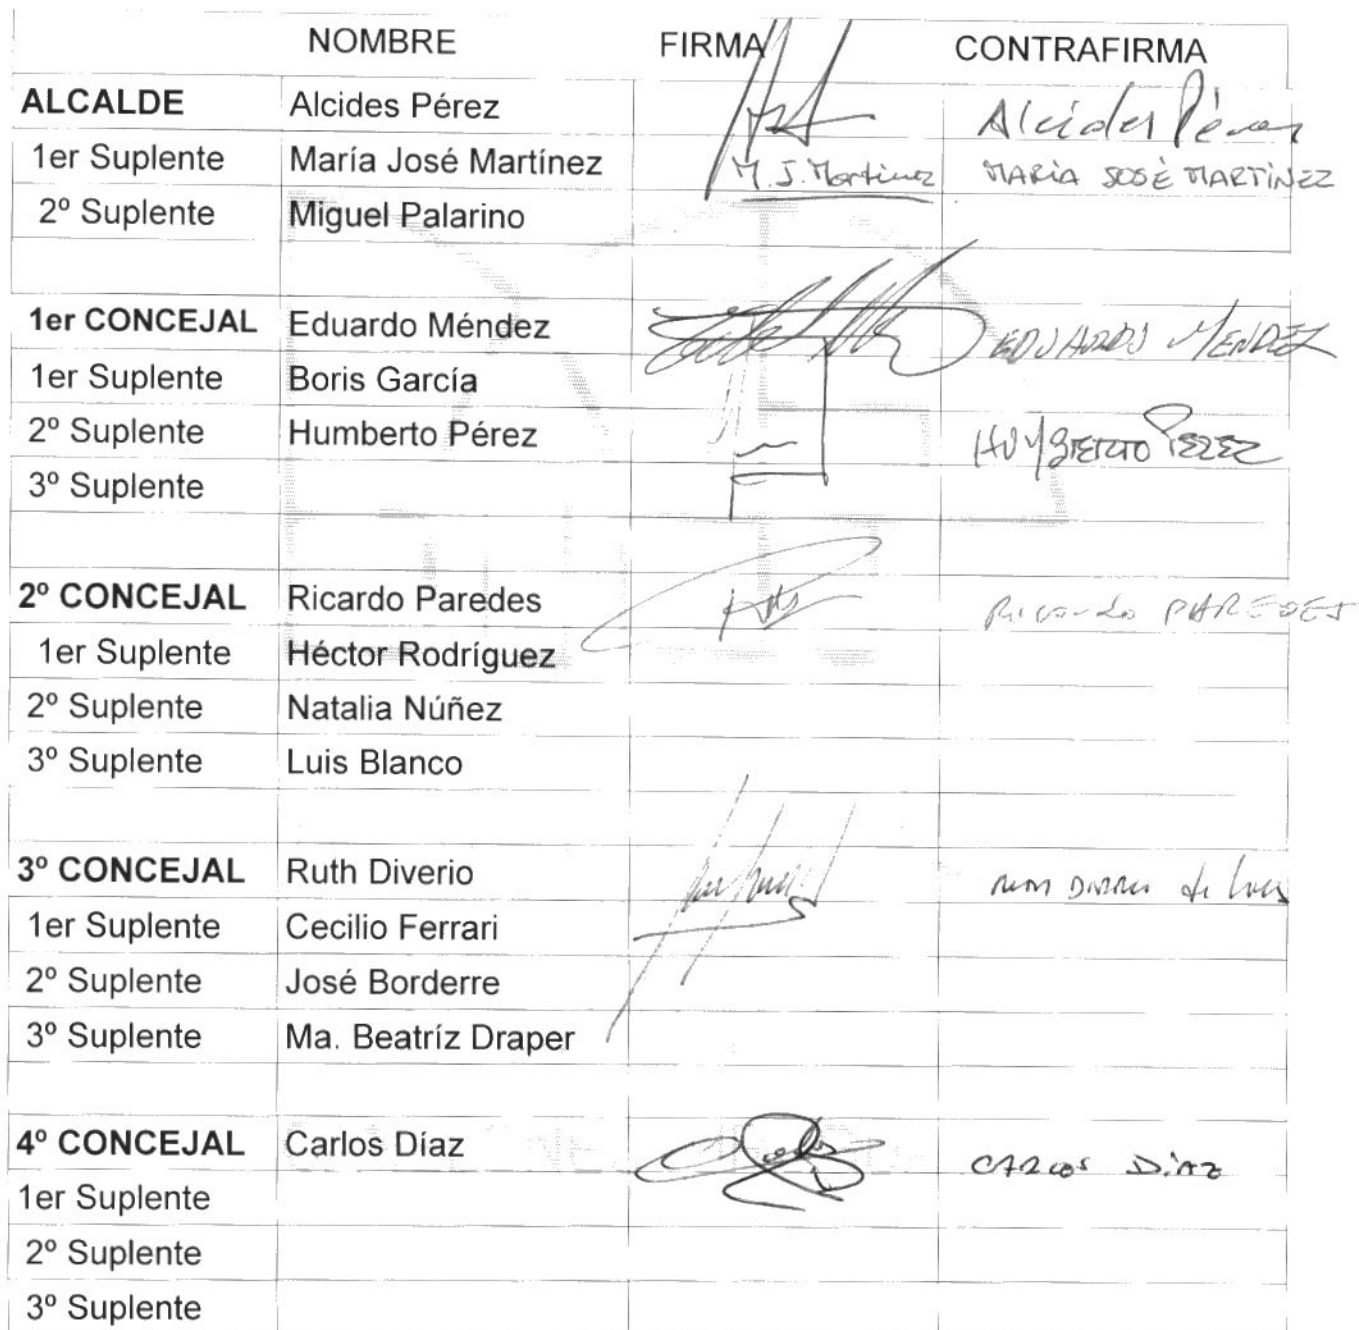 NOMBRE FIRMA CONTRAFIRMA
ALCALDE Alcides Pérez Alcides Pérez
1er Suplente María José Martínez M. J. Martínez MARÍA JOSÉ MARTÍNEZ
2º Suplente Miguel Palarino
1er CONCEJAL Eduardo Méndez EDUARDO MENDEZ
1er Suplente Boris García
2º Suplente Humberto Pérez HUMBERTO PEREZ
3º Suplente
2º CONCEJAL Ricardo Paredes Ricardo PAREDES
1er Suplente Héctor Rodríguez
2º Suplente Natalia Núñez
3º Suplente Luis Blanco
3º CONCEJAL Ruth Diverio
1er Suplente Cecilio Ferrari
2º Suplente José Borderre
3º Suplente Ma. Beatríz Draper
4º CONCEJAL Carlos Díaz CARLOS DÍAZ
1er Suplente
2º Suplente
3º Suplente